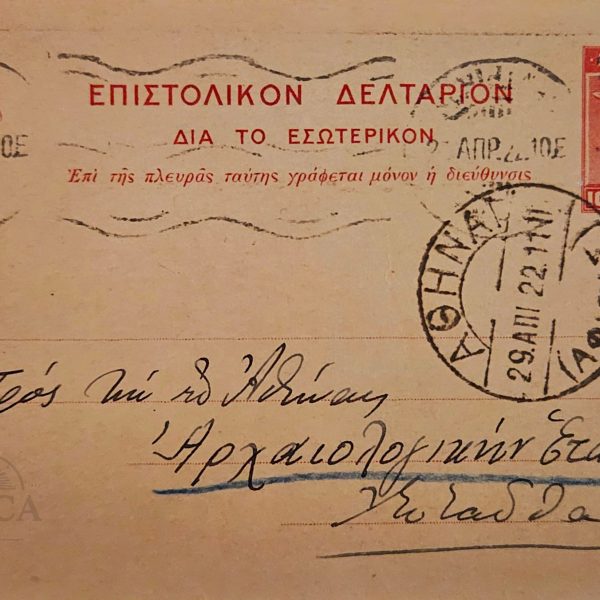 ΕΠΙΣΤΟΛΙΚΟΝ ΔΕΛΤΑΡΙΟΝ
ΔΙΑ ΤΟ ΕΣΩΤΕΡΙΚΟΝ
Ἐπὶ τῆς πλευρᾶς ταύτης γράφεται μόνον ἡ διεύθυνσις
ΑΠΡ. 22. 10Ε
ΑΘΗΝΑΙ
29. ΑΠΙ 22. 11
Πρός τὴν ἐν Ἀθήναις
Ἀρχαιολογικὴν Ἑται
Ἐνταῦθα
CA